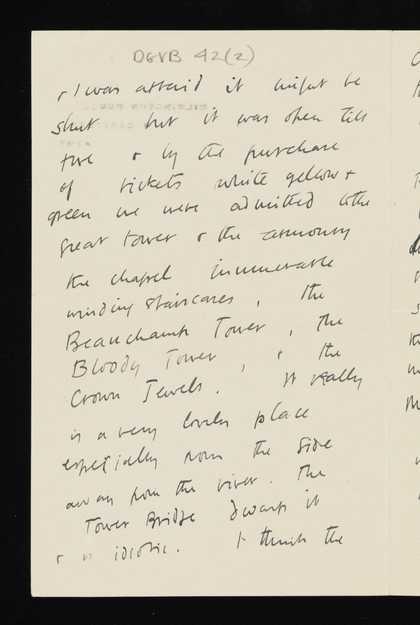 DGVB 42(2)
& I was afraid it might be
shut but it was open till
five & by the purchase
of tickets white yellow &
green we were admitted to the
great tower & the armoury
the chapel innumerable
winding staircases, the
Beauchamp Tower, the
Bloody Tower, & the
Crown Jewels. It really
is a very lovely place
especially from the side
away from the river. The
Tower Bridge dwarfs it
& is idiotic. I think the